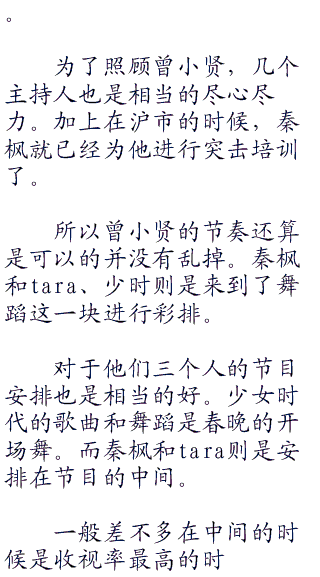 。
为了照顾曾小贤，几个
主持人也是相当的尽心尽
力。加上在沪市的时候，秦
枫就已经为他进行突击培训
了。
所以曾小贤的节奏还算
是可以的并没有乱掉。秦枫
和tara、少时则是来到了舞
蹈这一块进行彩排。
对于他们三个人的节目
安排也是相当的好。少女时
代的歌曲和舞蹈是春晚的开
场舞。而秦枫和tara则是安
排在节目的中间。
一般差不多在中间的时
候是收视率最高的时